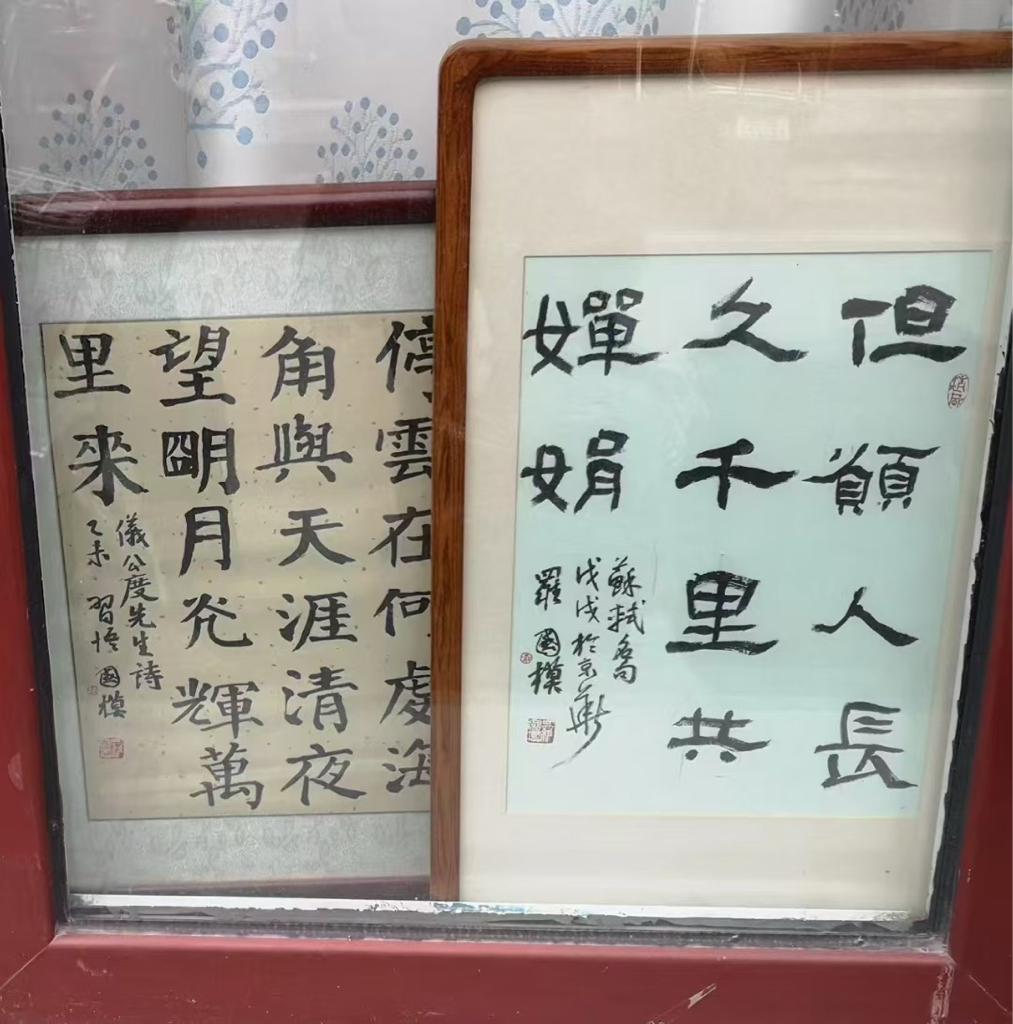 但願人長
久千里共
嬋娟
蘇軾名句
戊戌於京華
羅國模
停雲在何處海
角與天涯清夜
望明月光輝萬
里來
儀公度先生詩
乙未 習悟 國模